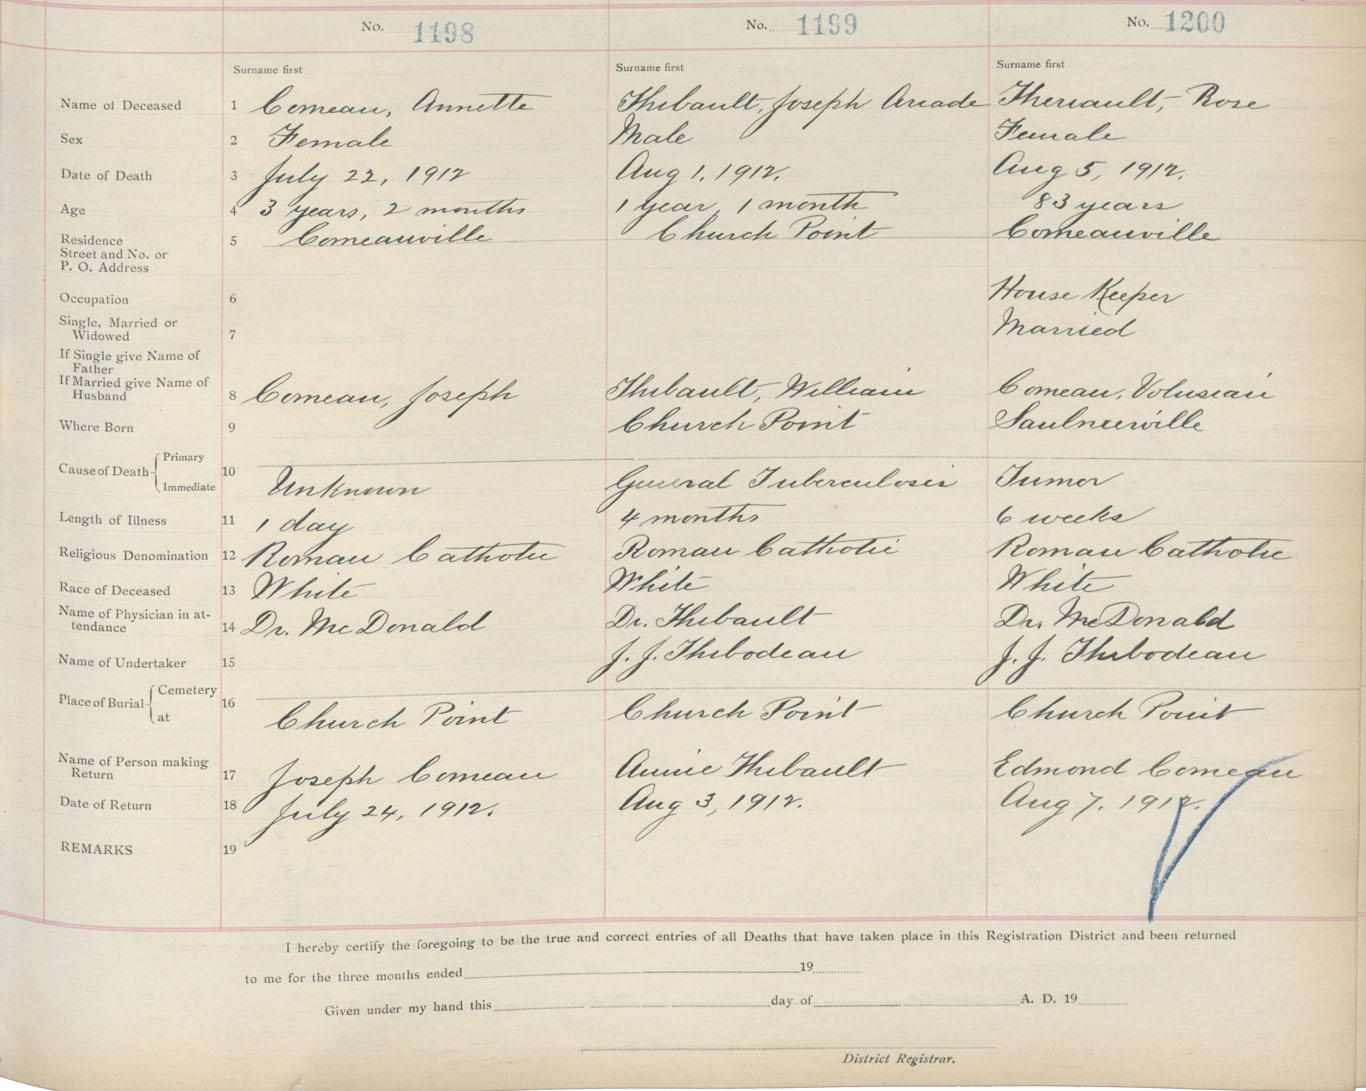 No. 1198 No. 1199 No. 1200
Surname first Surname first Surname first
Name of Deceased 1 Comeau, Annette Thibault, Joseph Arcade Theriault, Rose
Sex 2 Female Male Female
Date of Death 3 July 22, 1912 Aug 1, 1912. Aug 5, 1912.
Age 4 3 years, 2 months 1 year, 1 month 83 years
Residence 5 Comeauville Church Point Comeauville
Street and No. or
P. O. Address
Occupation 6 House Keeper
Single, Married or
Widowed 7 Married
If Single give Name of
Father
If Married give Name of
Husband 8 Comeau, Joseph Thibault, William Comeau, Volusean
Where Born 9 Church Point Saulnierville
Cause of Death Primary 10
Immediate Unknown General Tuberculosis Tumor
Length of Illness 11 1 day 4 months 6 weeks
Religious Denomination 12 Roman Catholic Roman Catholic Roman Catholic
Race of Deceased 13 White White White
Name of Physician in at-
tendance 14 Dr. McDonald Dr. Thibault Dr. McDonald
Name of Undertaker 15 J. J. Thibodeau J. J. Thibodeau
Place of Burial Cemetery 16
at Church Point Church Point Church Point
Name of Person making
Return 17 Joseph Comeau Annie Thibault Edmond Comeau
Date of Return 18 July 24, 1912. Aug 3, 1912. Aug 7, 1912.
REMARKS 19
I hereby certify the foregoing to be the true and correct entries of all Deaths that have taken place in this Registration District and been returned
to me for the three months ended 19
Given under my hand this day of A. D. 19
District Registrar.